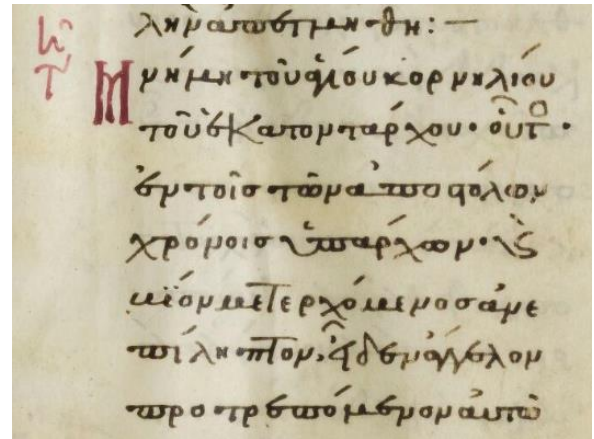 λὴν ἀπετμήθη :—
Μνήμη τοῦ ἁγίου κορνηλίου
τοῦ ἑκατοντάρχου· οὗτο·
ἐν τοῖς τῶν ἀποστόλων
χρόνοις ὑπάρχων· κς
βίον μετερχόμενος ἀνε
πίληπτον, εἶδεν ἄγγελον
προτρεπόμενον αὐτῶ